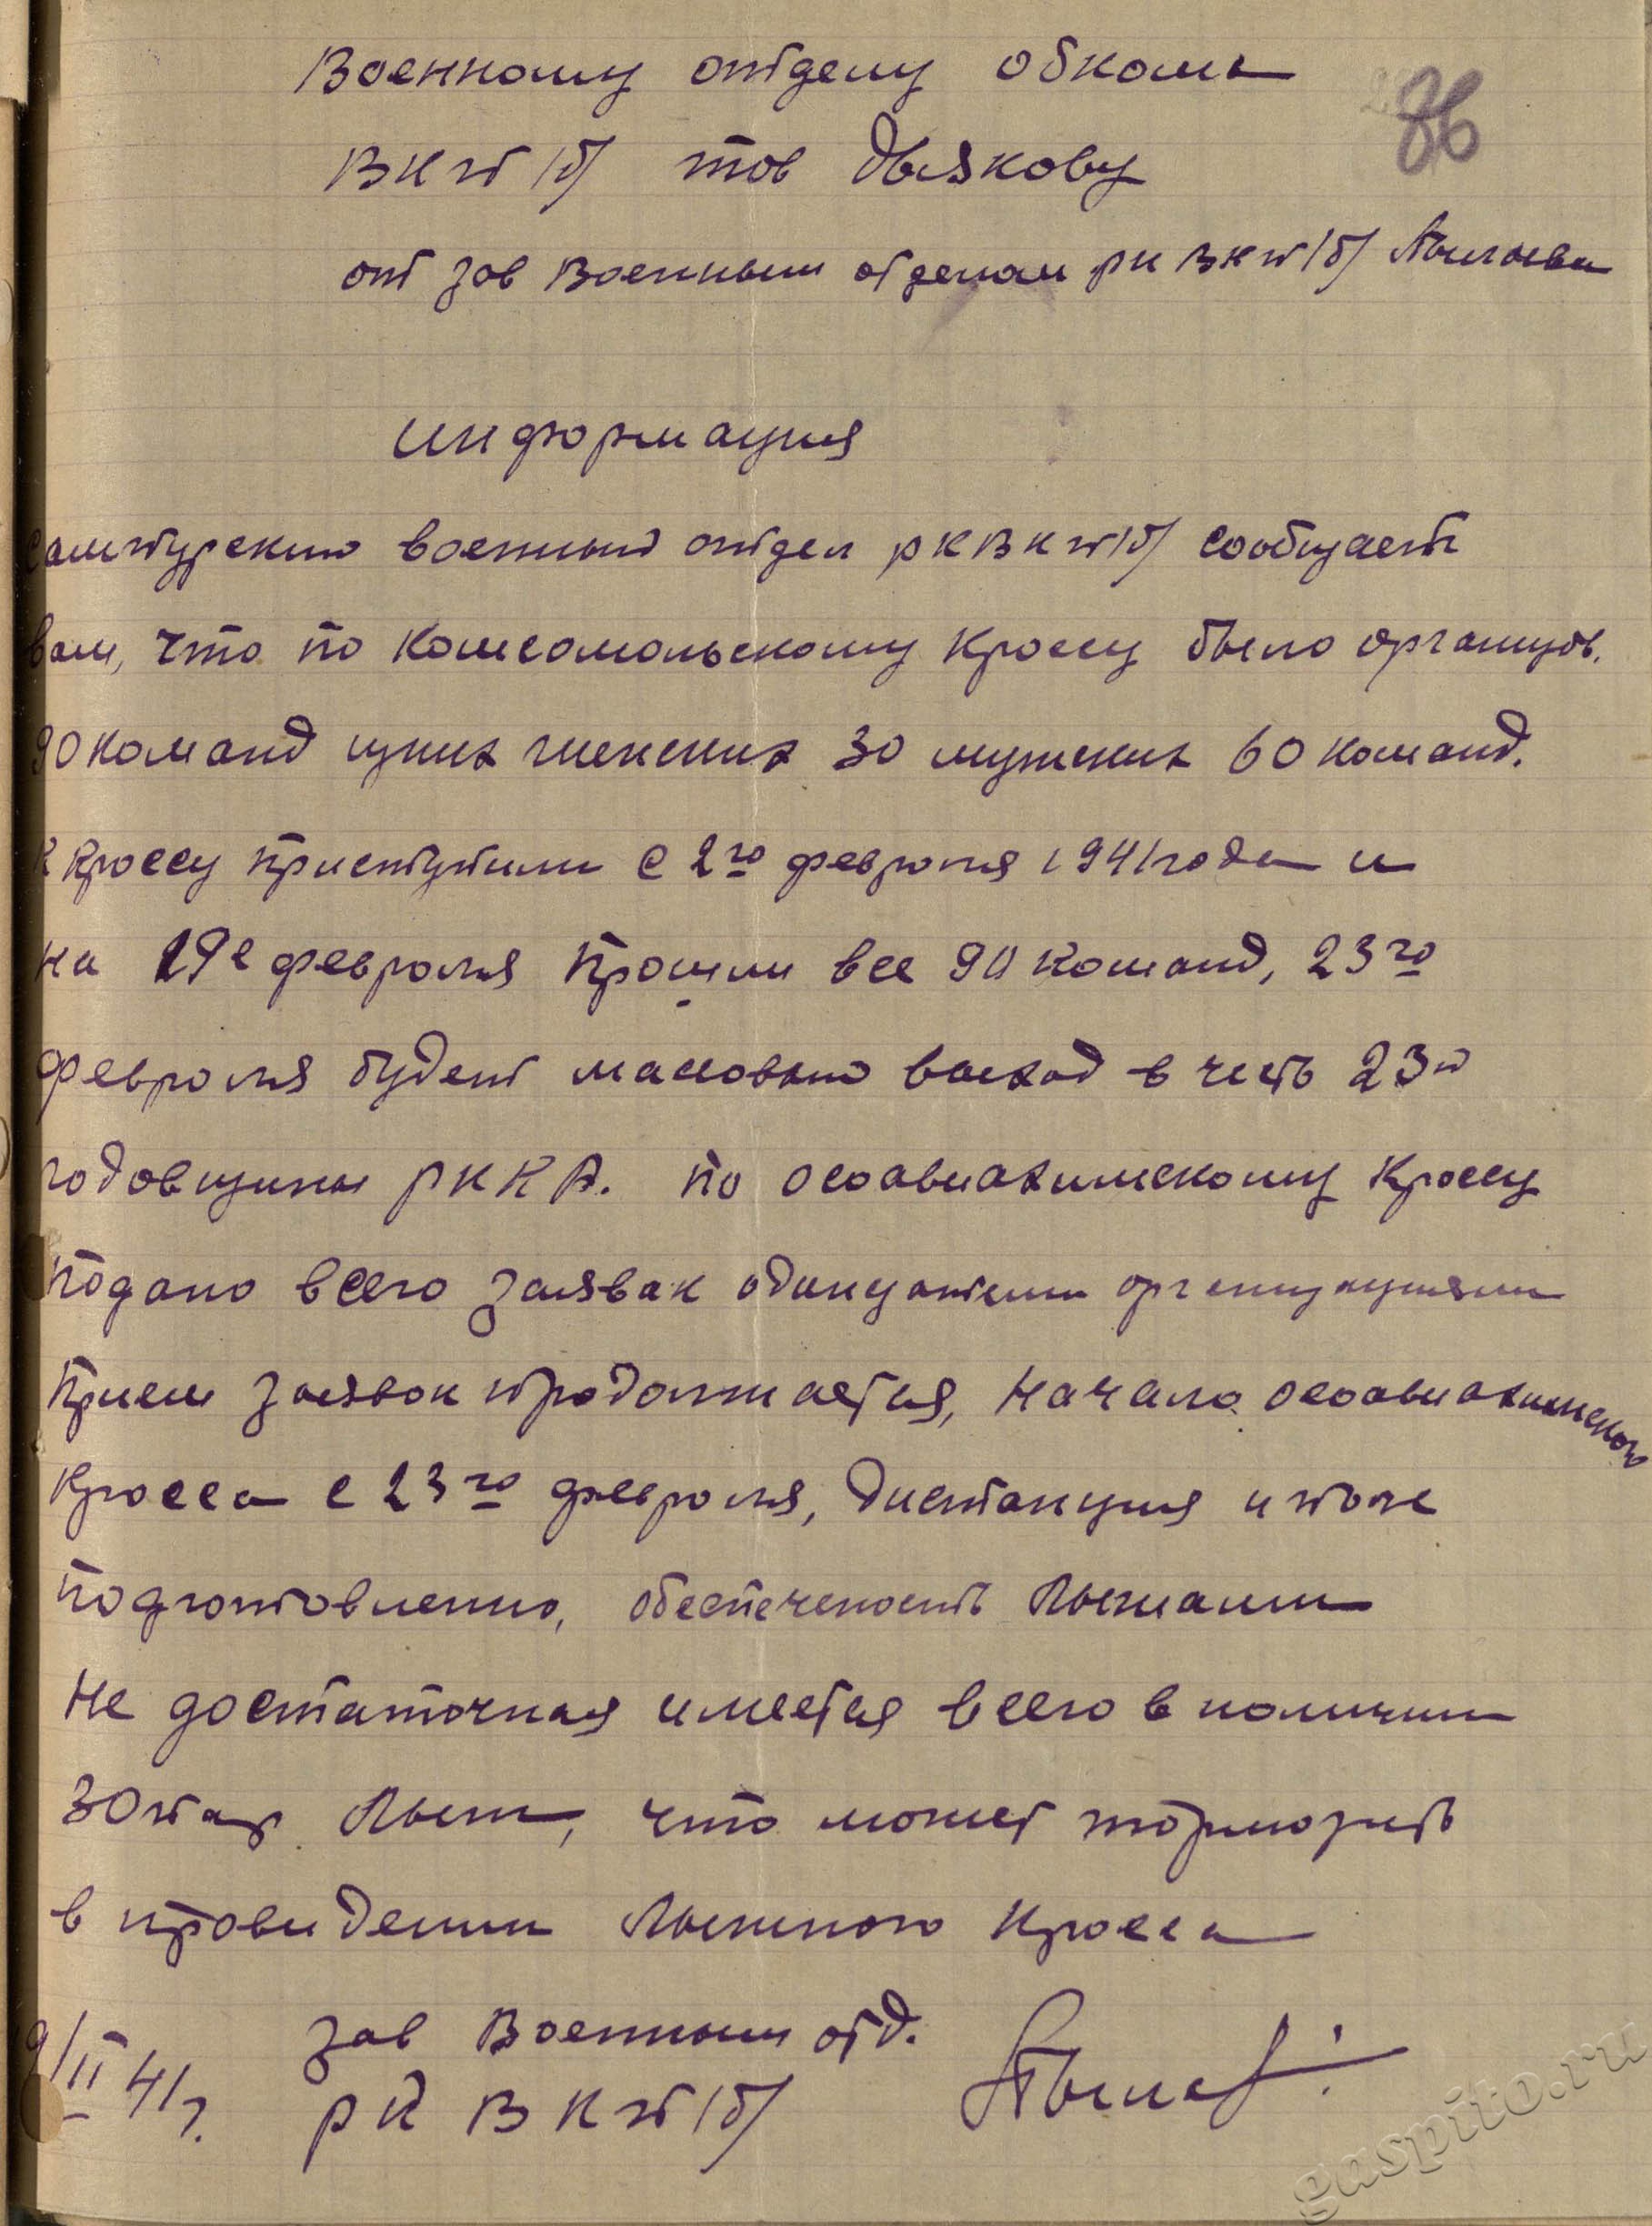 Военному отделу обкома
86
ВКП/б/ тов Дьякову
от зав Военным отделам РК ВКП/б/
информация
Сампурскию военный отдел РКВКП/б/ сообщает
вам, что по комсомольскому кроссу было организов.
90 команд из них женских 30 мужских 60 команд.
К кроссу приступили с 2го февраля 1941 года и
на 19е февраля прошли все 90 команд, 23го
февраля будет масовыю выход в честь 23й
годовщины РККА. По осоавиахимскому кроссу
подано всего заявак одинцатими организациями
прием заявок продолжается, начало осоавиахимского
кросса с 23го февраля, дистанция и поле
подготовленно, обеспеченость лыжами
не достаточная имеется всего в наличии
30 пар лыж, что может тормозить
в проведении лыжного кросса
9/II 41 г. зав Военным отд.
РК ВКП/б/
gaspito.ru